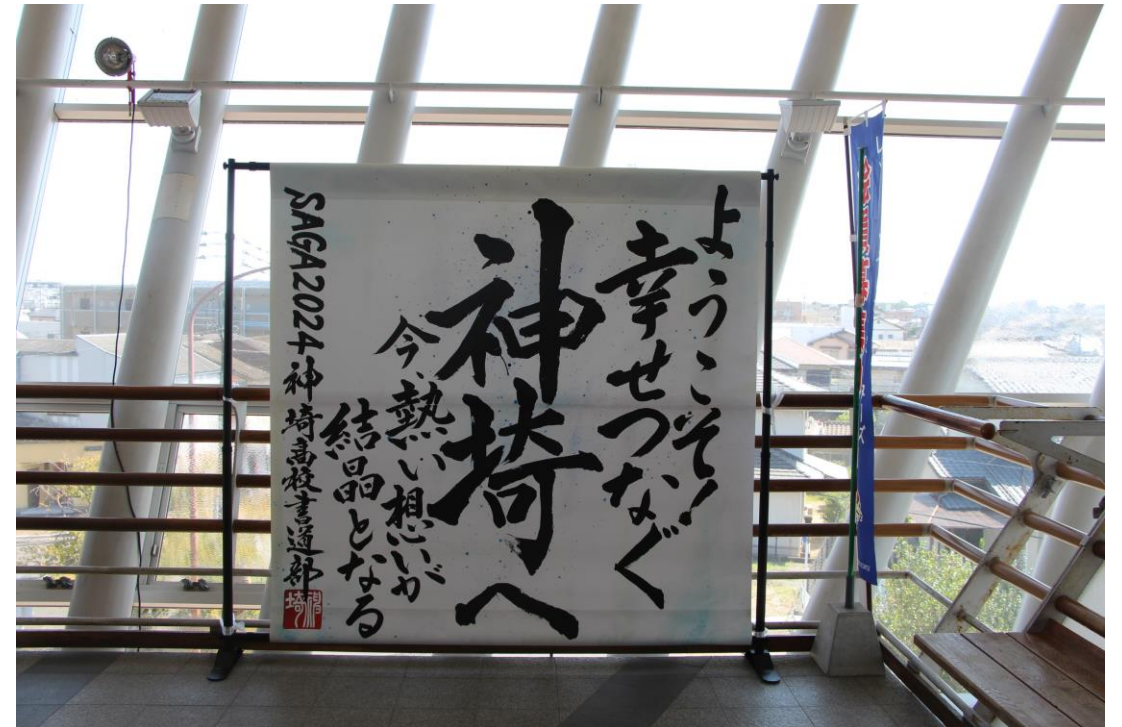 ようこそ！
幸せつなぐ
神埼へ
今、熱い想いが
結晶となる
SAGA2024 神埼高校書道部
神埼